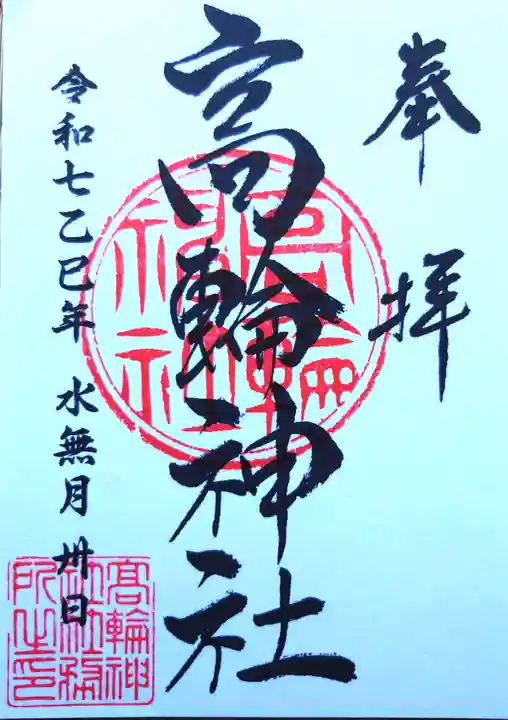 奉拝
高輪神社
令和七乙巳年 水無月 卅日
高輪
神社
高輪神
社社務
所之印